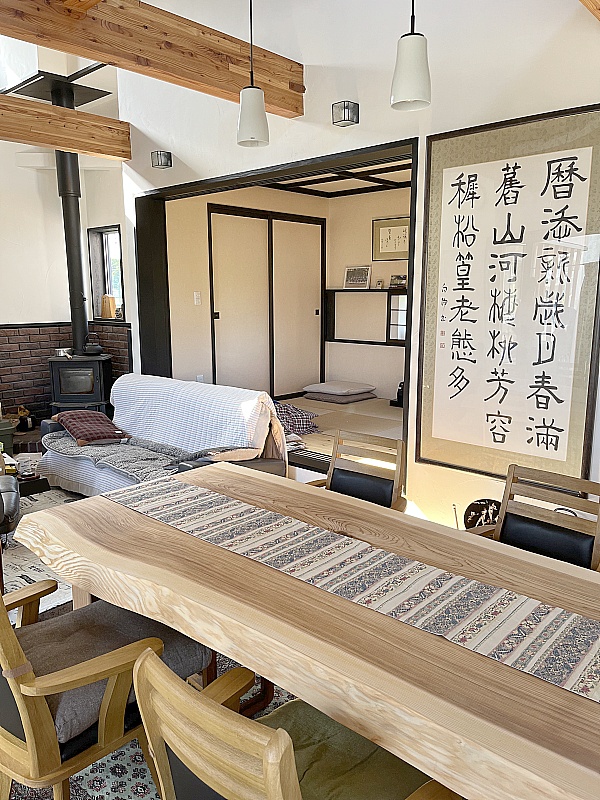 曆添新歲月春滿
舊山河梅柳芳容
稺松篁老態多